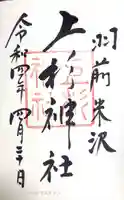 羽前米沢
上杉神社
令和四年四月二十日